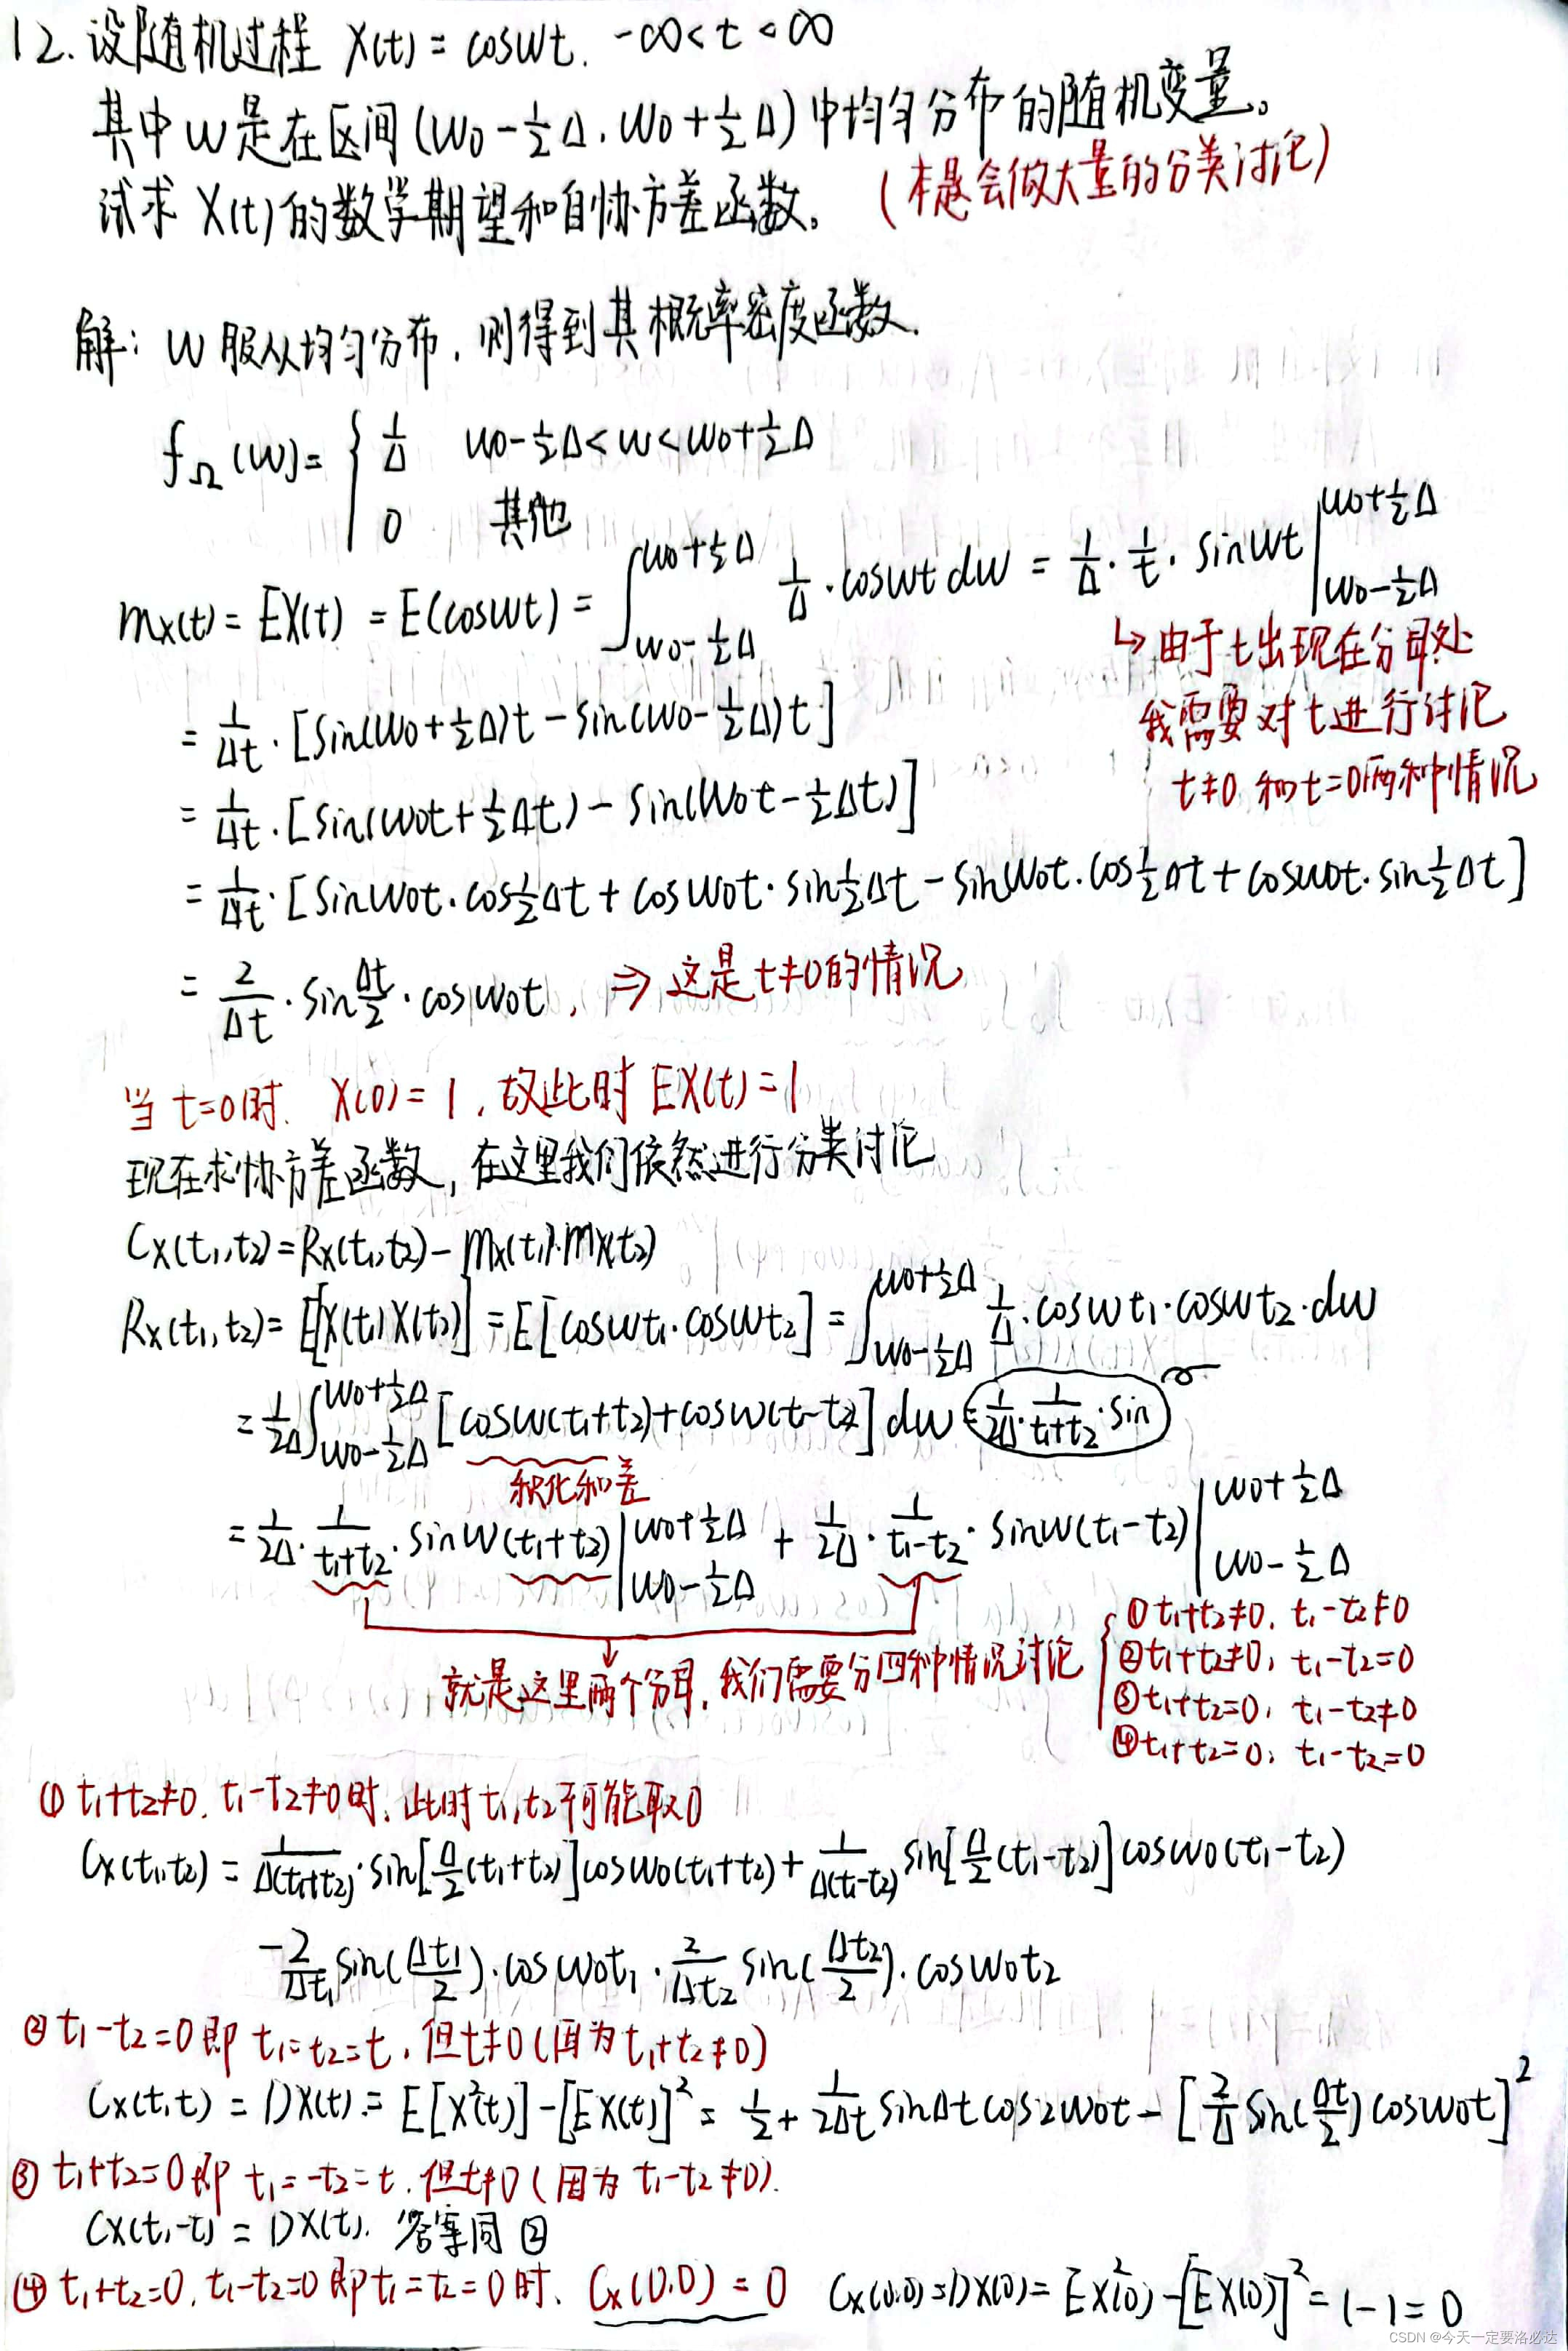 12. 设随机过程 X(t) = coswt. -∞<t<∞
其中w是在区间(w0-½Δ, w0+½Δ)中均匀分布的随机变量。
试求X(t)的数学期望和自协方差函数。
(本题会做大量的分类讨论)
解: w服从均匀分布, 则得到其概率密度函数.
fΩ(w)= { 1/Δ w0-½Δ<w<w0+½Δ
0 其他
mx(t)= EX(t) = E(coswt) = ∫_{w0-½Δ}^{w0+½Δ} 1/Δ·coswt dw = 1/Δ·1/t·sinwt|_{w0-½Δ}^{w0+½Δ}
↳由于t出现在分母处
我需要对t进行讨论
t≠0和t=0两种情况
= 1/Δt·[sin(w0+½Δ)t-sin(w0-½Δ)t]
= 1/Δt·[sin(w0t+½Δt)-sin(w0t-½Δt)]
= 1/Δt·[sinw0t·cos½Δt+cosw0t·sin½Δt-sinw0t·cos½Δt+cosw0t·sin½Δt]
= 2/Δt·sin Δt/2·cosw0t, ⇒这是t≠0的情况
当t=0时. X(0)=1, 故此时EX(t)=1
现在求协方差函数, 在这里我们依然进行分类讨论
Cx(t1,t2)=Rx(t1,t2)-mx(t1)·mx(t2)
Rx(t1,t2)= E[X(t1)X(t2)] = E[coswt1·coswt2] = ∫_{w0-½Δ}^{w0+½Δ} 1/Δ·coswt1·coswt2·dw
= 1/2Δ ∫_{w0-½Δ}^{w0+½Δ} [cosw(t1+t2)+cosw(t1-t2)] dw = 1/2Δ·1/(t1+t2)·sin
积化和差
= 1/2Δ·1/(t1+t2)·sinw(t1+t2)|_{w0-½Δ}^{w0+½Δ} + 1/2Δ·1/(t1-t2)·sinw(t1-t2)|_{w0-½Δ}^{w0+½Δ}
就是这里两个分母, 我们需要分四种情况讨论
①t1+t2≠0, t1-t2≠0
②t1+t2≠0, t1-t2=0
③t1+t2=0, t1-t2≠0
④t1+t2=0, t1-t2=0
① t1+t2≠0, t1-t2≠0时, 此时t1,t2不可能取0
Cx(t1,t2) = 1/Δ(t1+t2)·sin[Δ/2(t1+t2)]cosw0(t1+t2)+1/Δ(t1-t2) sin[Δ/2(t1-t2)]cosw0(t1-t2)
-2/Δt1 sin(Δt1/2)·cosw0t1·2/Δt2 sin(Δt2/2)·cosw0t2
② t1-t2=0即t1=t2=t, 但t≠0(因为t1+t2≠0)
Cx(t,t) = DX(t) = E[X²(t)]-[EX(t)]² = ½+1/2Δt sinΔt cos2w0t-[2/Δ sin(Δt/2)cosw0t]²
③ t1+t2=0即t1=-t2=t, 但t≠0(因为t1-t2≠0).
Cx(t,-t) = DX(t). 答案同②
④ t1+t2=0, t1-t2=0即t1=t2=0时, Cx(0,0)=0 Cx(0,0)=DX(0)=EX²(0)-[EX(0)]²=1-1=0
CSDN @今天一定要洛必达